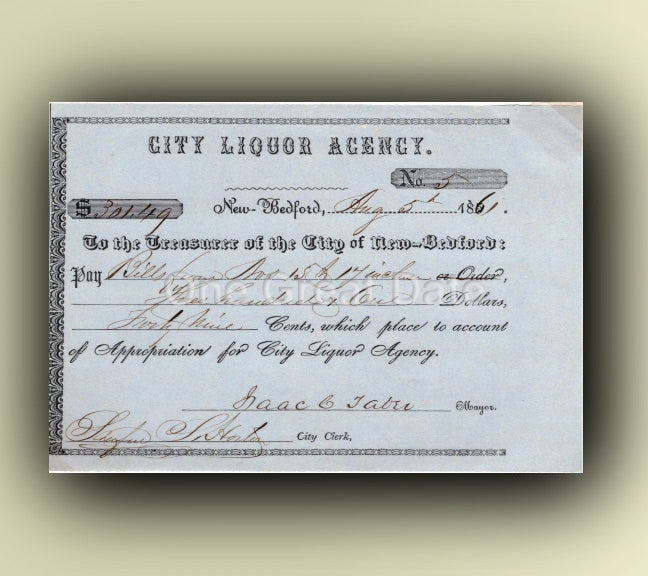 CITY LIQUOR AGENCY.
No. 5
$301.49 New-Bedford, Aug 5th 1861.
To the Treasurer of the City of New-Bedford:
Pay Bills from Nos 15 to 17 inclu or Order,
One Great Date
Three hundred one Dollars,
Forty Nine Cents, which place to account
of Appropriation for City Liquor Agency.
Isaac C Taber Mayor.
S. Horton City Clerk,